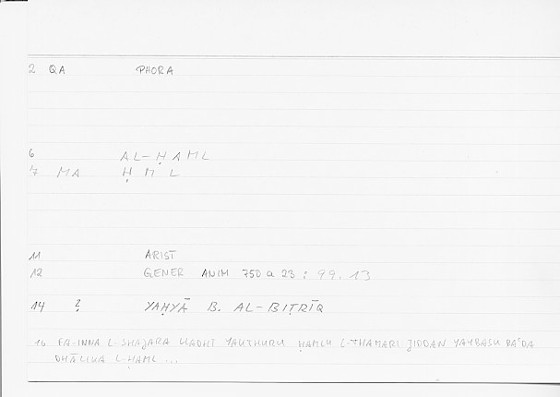 2 QA PHORA
6 AL-ḤAML
7 MA ḤML
11 ARIST
12 GENER ANIM 750 a 23 : 99.13
14 ? YAḤYĀ B. AL-BIṬRĪQ
16 FA-INNA L-SHAJARA LLADHĪ YAKTHURU ḤAMLU L-THAMARI JIDDAN YAYBASU BA'DA
DHĀLIKA L-ḤAML ...